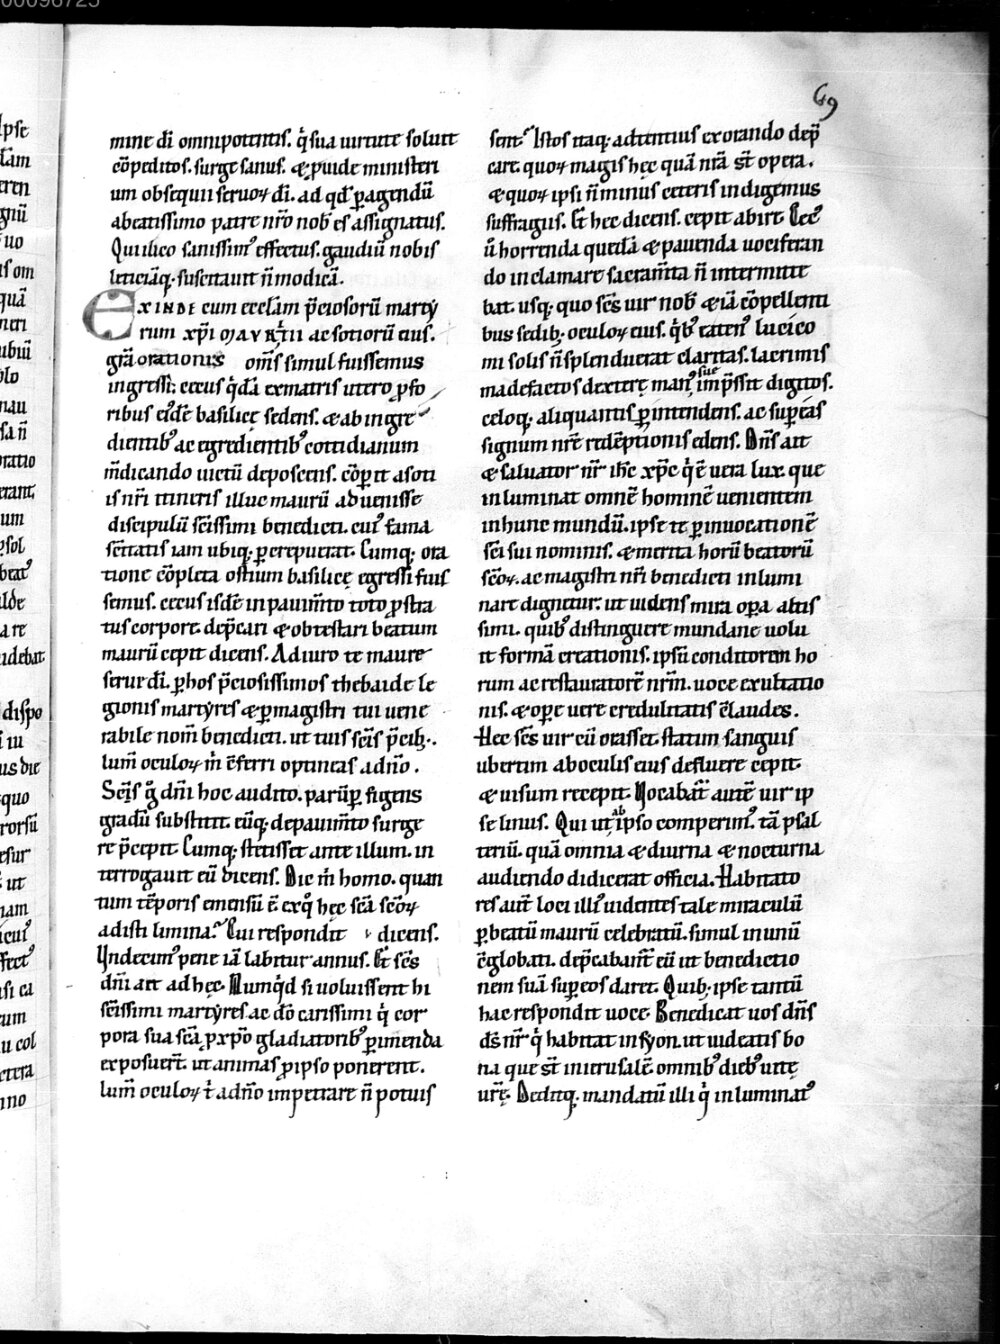 69
mine dī omnipotentis. q̇ sua uirtute soluit
cōpeditos. surge sanus. & puide ministeri
um obsequii seruoꝝ dī. ad qd̄ ꝑagendū
abeatissimo patre nr̄o nob᷒ es assignatus.
Qui ilico sanissim᷒ effectus. gaudiū nobis
leticiāq; suscitauit n̄ modicā.
EXINDE cum ecclām p̄ciosorū marty
rum xp̄i MAVRITII ac sotiorū eius.
gr̄a orationis om̄s simul fuissemus
ingressi. cecus q̇dā exmatris utero ꝓfo
ribus eiꝰdē basilicę sedens. & ab ingre
dientib᷒ ac egredientib᷒ cottidianum
m̄dicando uictū deposcens. cōꝑit asoti
is nr̄i itineris illuc maurū aduenisse
discipulū sc̄issimi benedicti. cui᷒ fama
sc̄itatis iam ubiq; ꝑcrepuerat. Cumq; ora
tione cōpleta ostium basilicę egressi fuis
semus. cecus isdē in pauim̄to toto ꝓstra
tus corpore. dep̄cari & obtestari beatum
maurū cepit dicens. Adiuro te maure
serue dī. ꝑ hos p̄ciosissimos thebaide le
gionis martyres & ꝑ magistri tui uene
rabile nom̄ benedicti. ut tuis sc̄is p̄cib;.
lum̄ oculoꝝ m̄ c̄ferri optineas adn̄o.
Sc̄is g̊ dn̄i hoc audito. parūꝑ figens
gradū substitit. eūq; depauim̄to surge
re p̄cepit. Cumq; stetisset ante illum. in
terrogauit eū dicens. Dic m̄ homo. quan
tum tēporis emensū ē. exq̊ hęc sc̄a sc̄oꝝ
adisti limina? Cui respondit dicens.
Undecim᷒ pene iā labitur annus. Et sc̄s
dn̄i ait ad hęc. Numq̇d si uoluissent hi
sc̄issimi martyres. ac dō carissimi q̇ cor
pora sua sc̄a ꝓ xp̄o gladiatorib᷒ ꝑimenda
exposuer̄t. ut animas ꝓ ipso ponerent.
lum̄ oculoꝝ t̄ adn̄o impetrare n̄ potuis
sent? Istos itaq; adtentius exorando dep̄
care. quoꝝ magis hęc quā nr̄a st̄ opera.
& quoꝝ ipsi n̄ minus ceteris indigemus
suffragiis. Et hec dicens. cepit abire. Cec᷒
ū horrenda quedā & pauenda uociferan
do inclamare sacram̄ta n̄ intermitte
bat. usq; quo sc̄s uir nob᷒ & iā cōpellenti
bus sedib; oculoꝝ eius. q̇b᷒ caten᷒ luci co
mi solis n̄ splenduerat claritas. lacrimis
madefactos dexterę man᷒ suę imp̄ssit digitos.
celoq; aliquantis ꝑ intendens. ac suꝑ eas
signum nr̄e redēptionis edens. Dn̄s ait
& saluator nr̄ ih̄c xp̄c q̇ ē uera lux. que
inluminat omnē hominē uenientem
in hunc mundū. ipse te ꝑ inuocationē
sc̄i sui nominis. & merita horū beatorū
sc̄oꝝ. ac magistri nr̄i benedicti inlumi
nare dignetur. ut uidens mira oꝑa altis
simi. quib᷒ distinguere mundane uolu
it formā creationis. ipsū conditorem ho
rum ac restauratorē nr̄m. uoce exultatio
nis. & oꝑe uere credulitatis c̄laudes.
Hec sc̄s uir cū orasset. statim sanguis
ubertim aboculis eius defluere cepit
& uisum recepit. Uocabat᷒ autē uir ip
se linus. Qui ut ab ipso comperim᷒. tā psal
teriū. quā omnia & diurna & nocturna
audiendo didicerat officia. Habitato
res aut̄ loci illi᷒ uidentes tale miraculū
ꝑ beatū maurū celebratū. simul in unū
c̄globati. dep̄cabant᷒ eū ut benedictio
nem suā suꝑ eos daret. Quib; ipse tantū
hac respondit uoce. Benedicat uos dn̄s
ds̄ nr̄ q̇ habitat in syon. ut uideatis bo
na que st̄ in ierusalē omnib᷒ dieb᷒ uitę
ur̄ę. Deditq; mandatū illi q̇ inluminat᷒